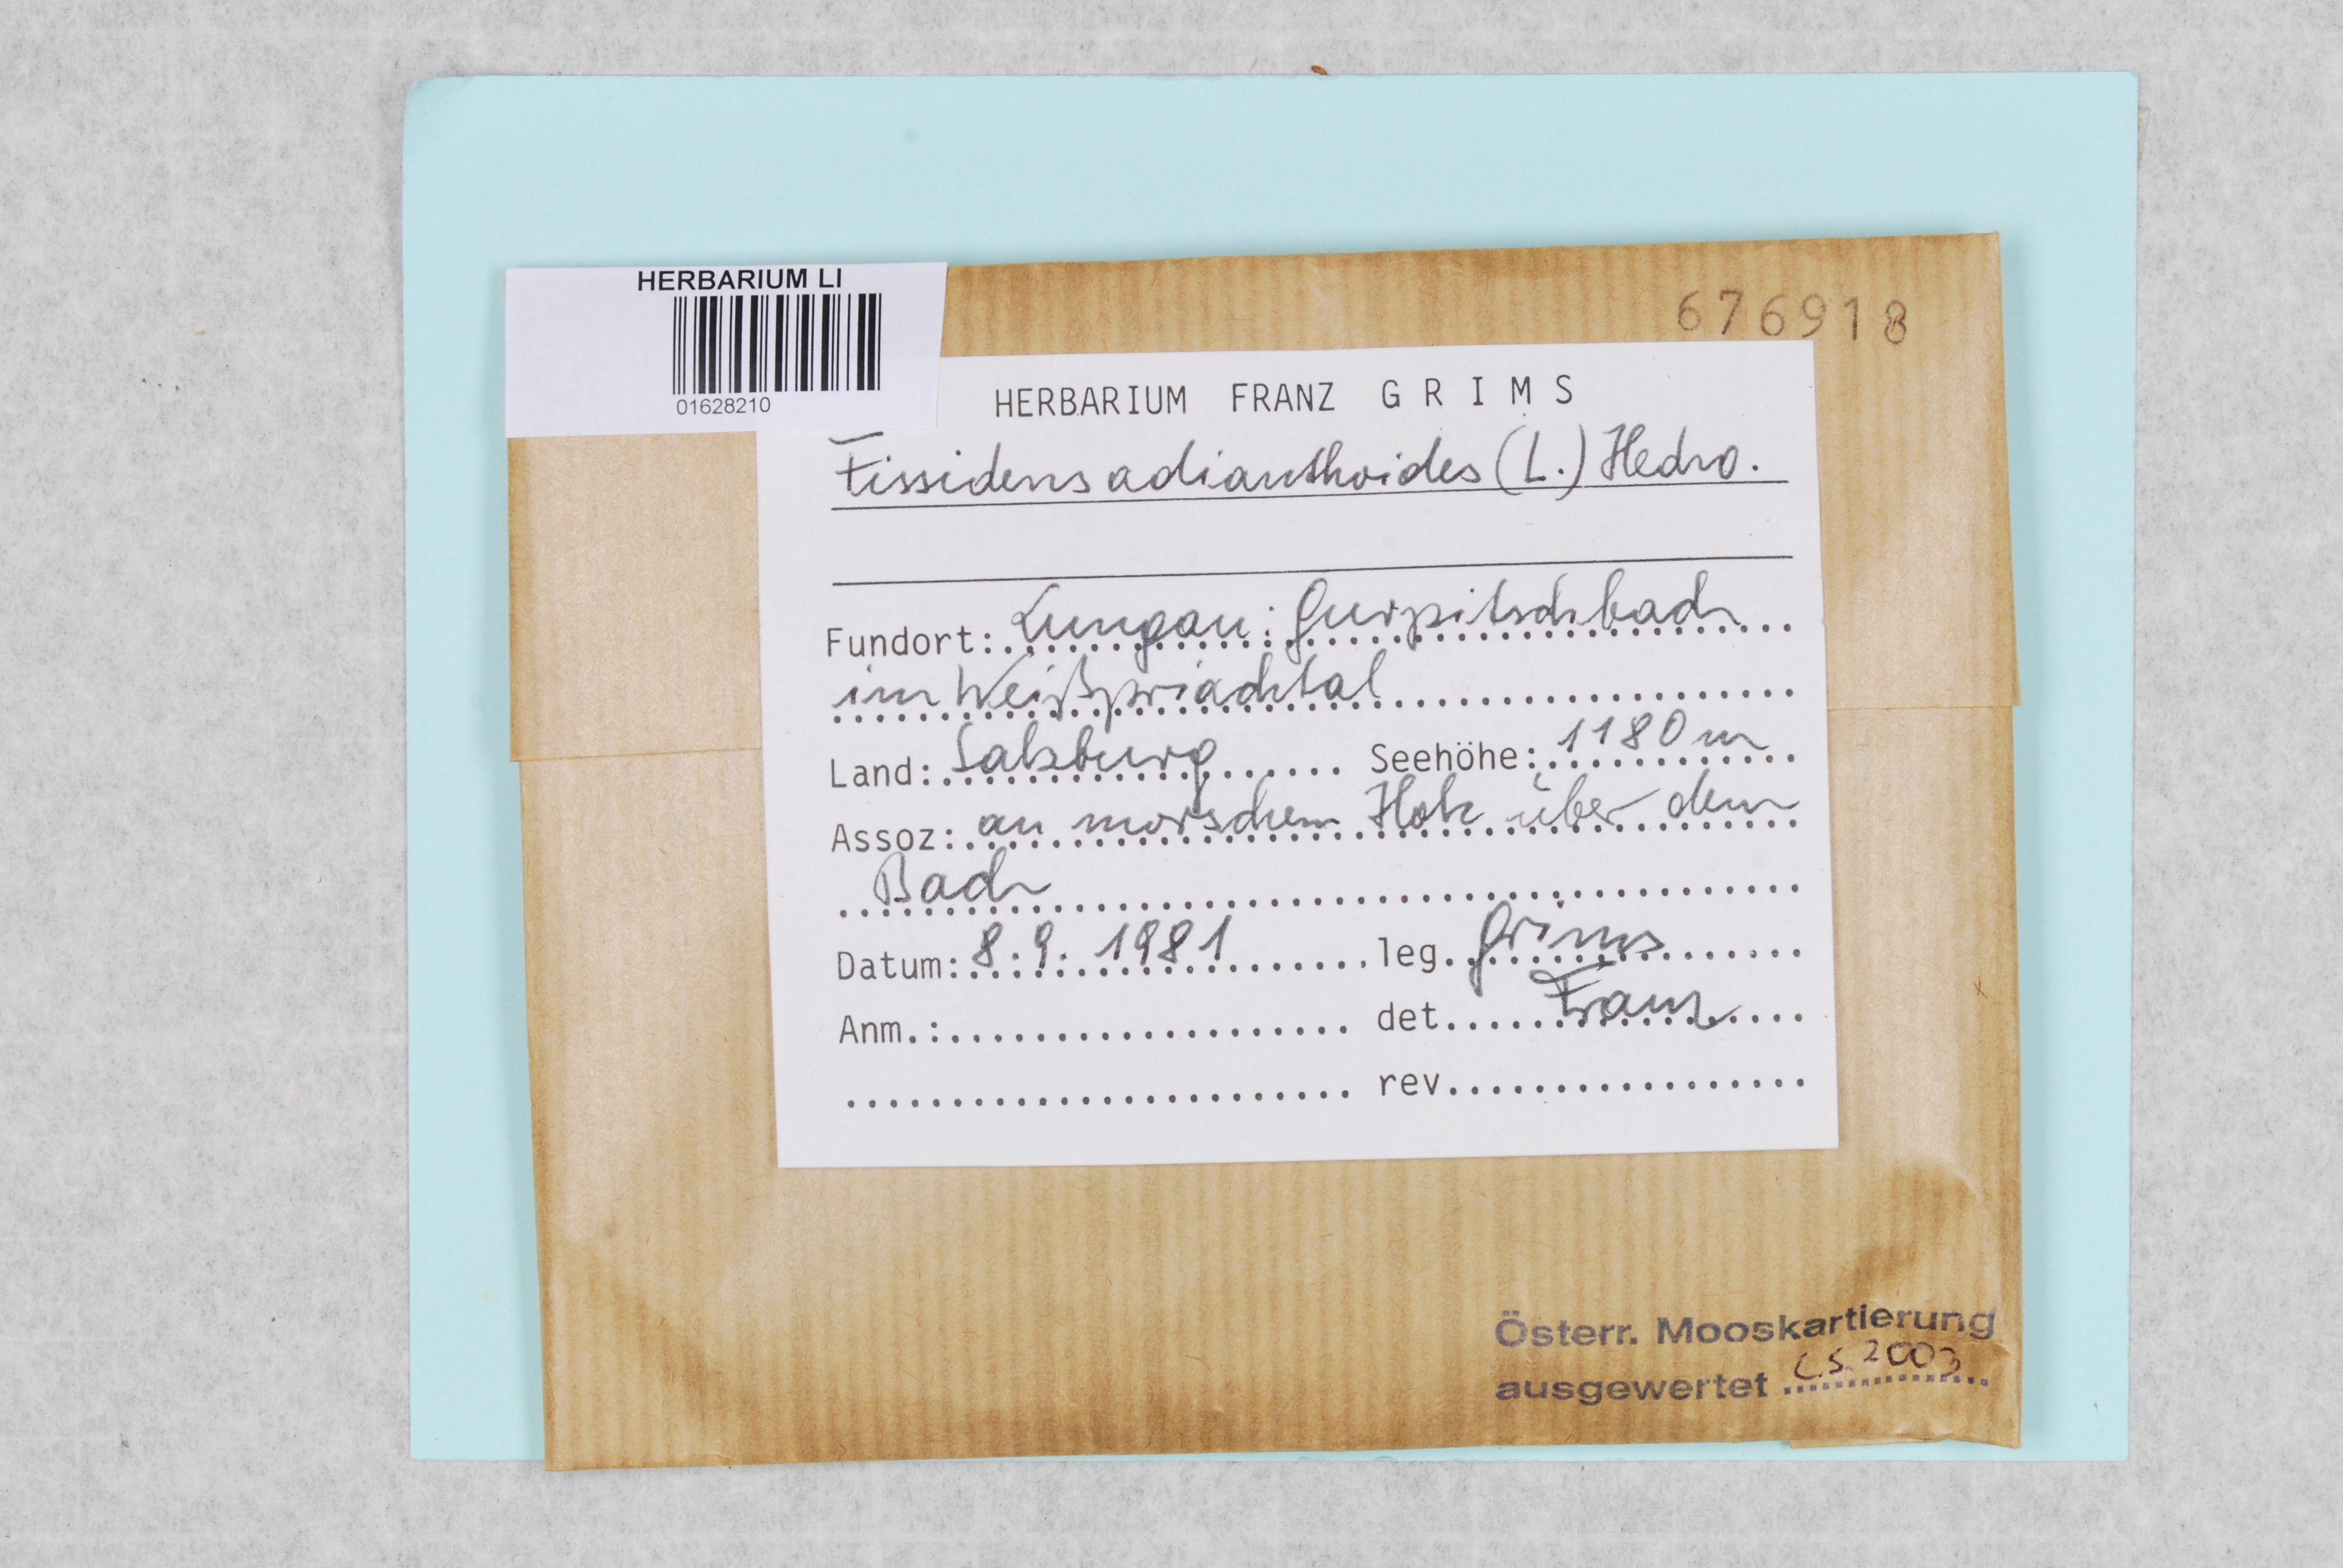 HERBARIUM LI
01628210
676918
HERBARIUM FRANZ GRIMS
Fissidens adianthoides (L.) Hedw.
Fundort: Lungau: Gurpitschbach
im Weißpriachtal
Land: Salzburg Seehöhe: 1180 m
Assoz: an morschem Holz über dem
Bach
Datum: 8.9.1981 leg. Grims
Anm.: det. Franz
rev.
Österr. Mooskartierung
ausgewertet C.S. 2003